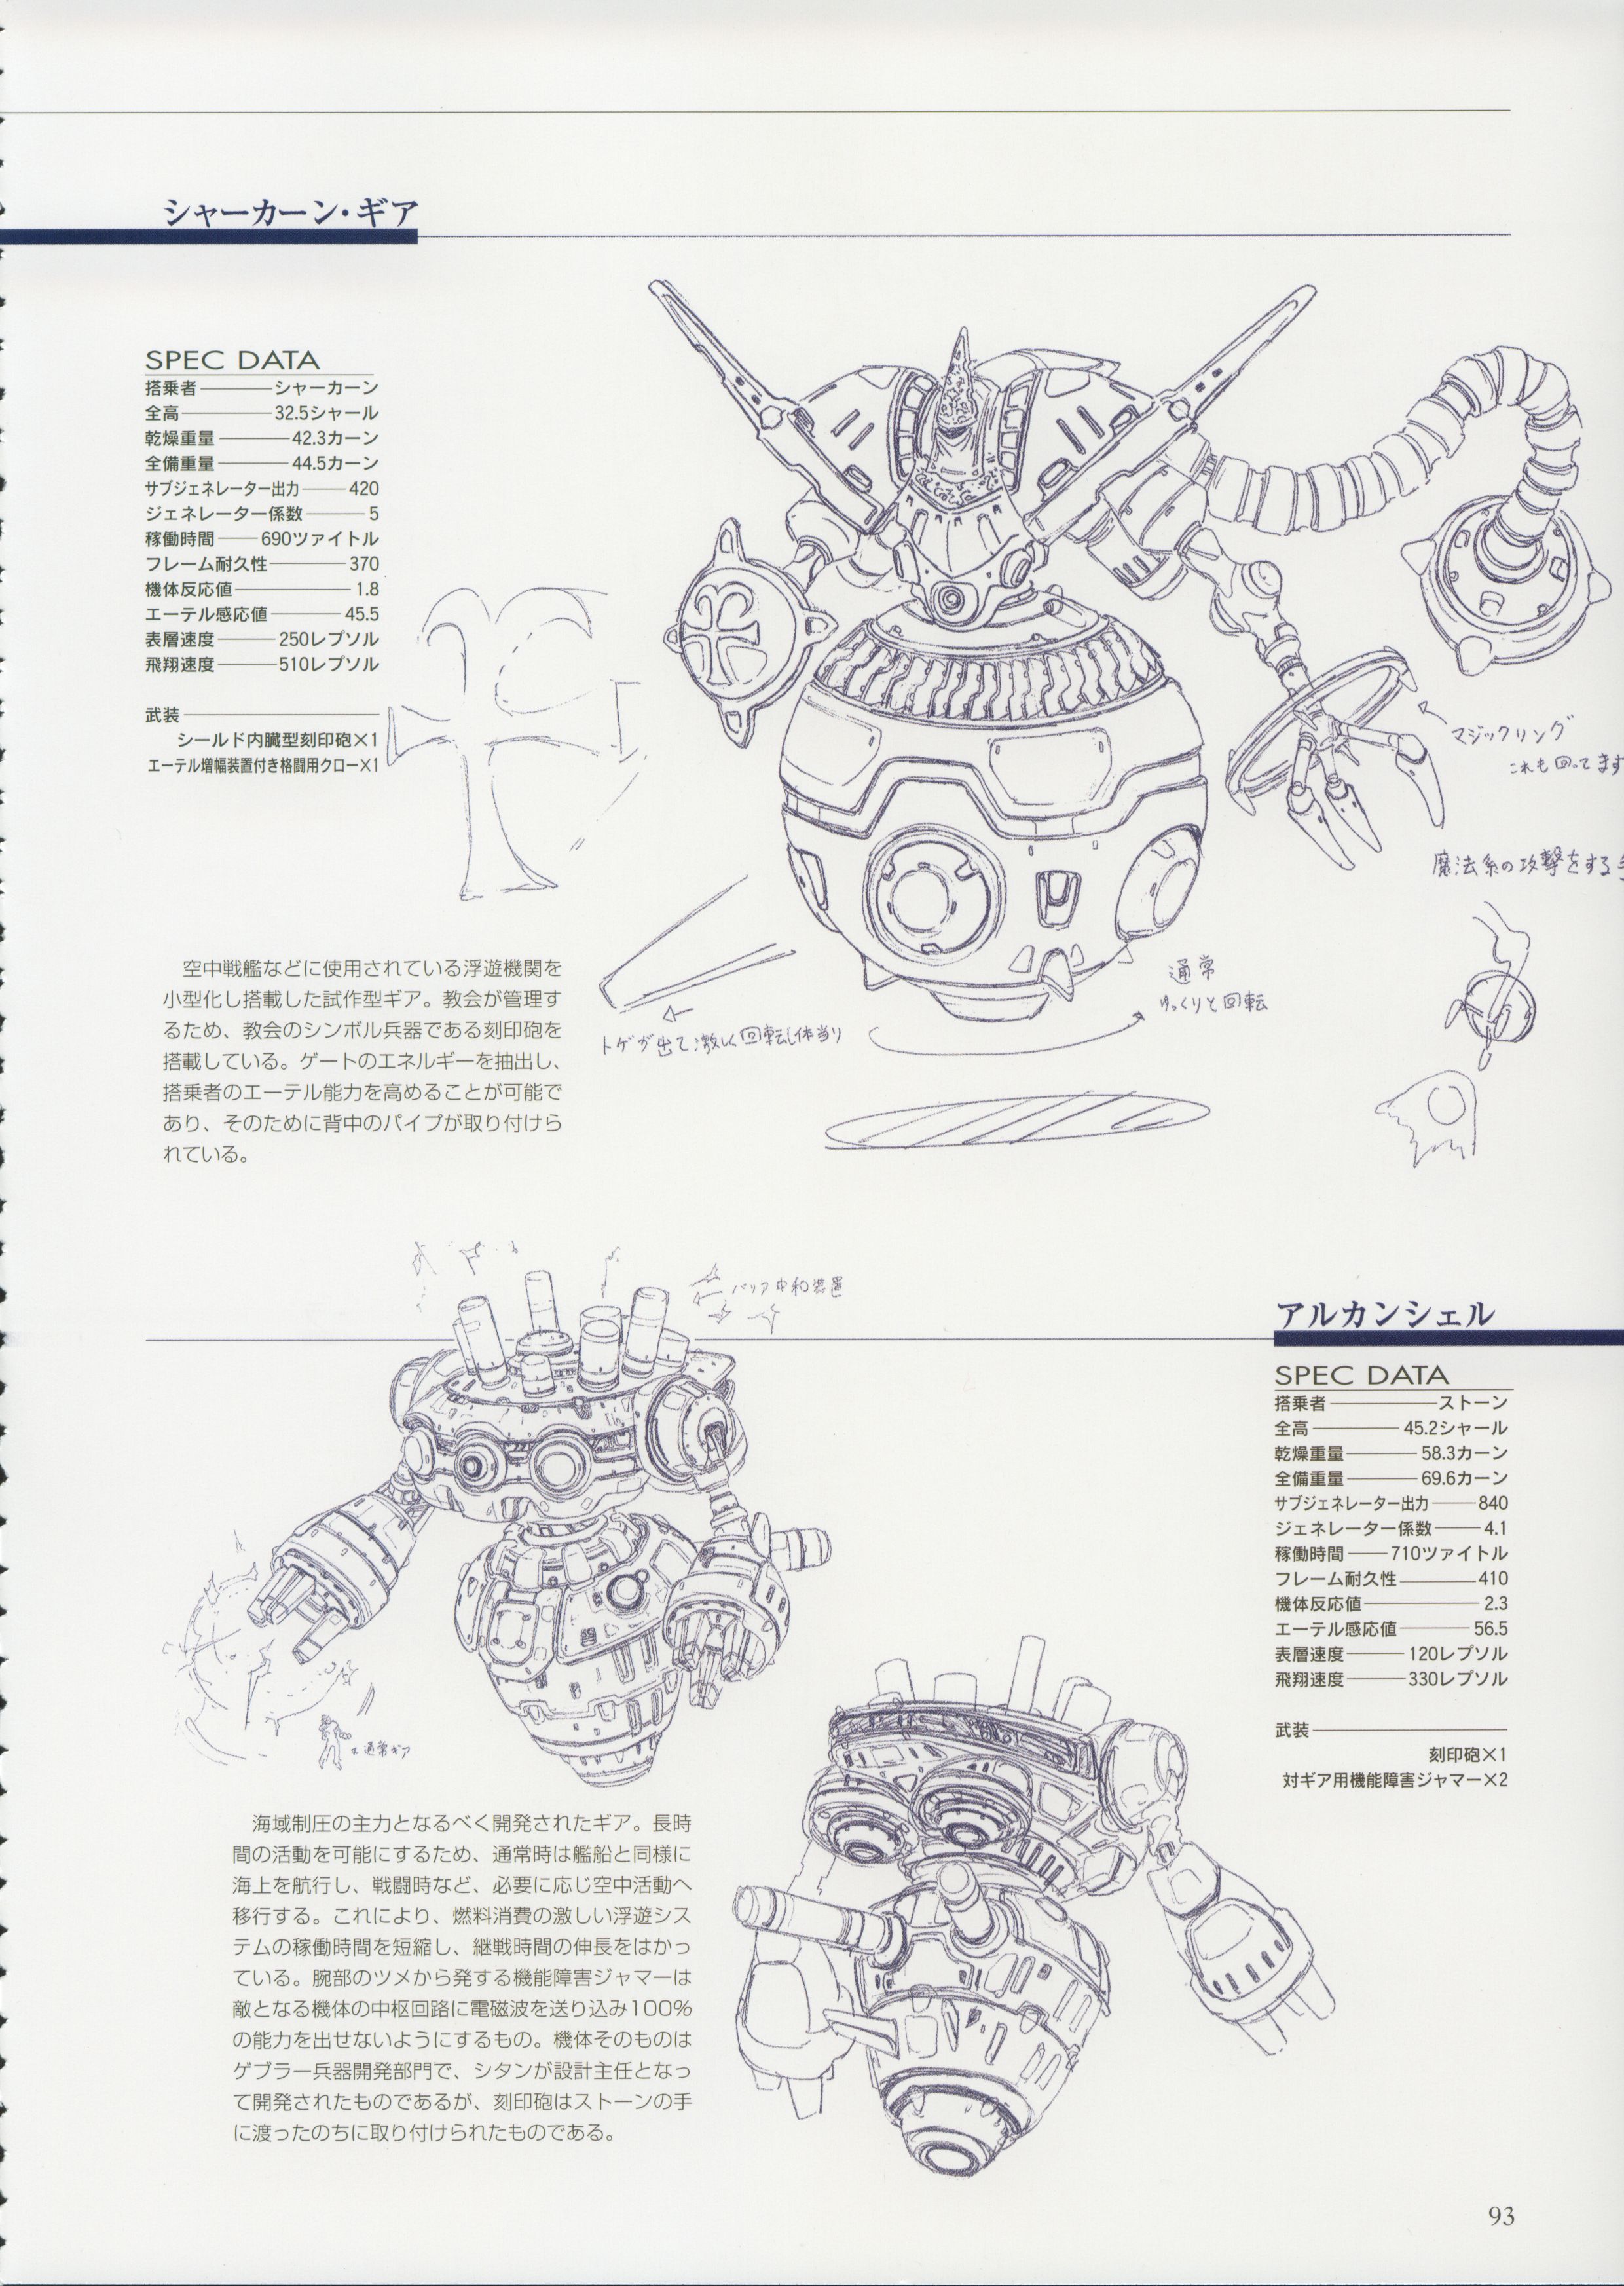 シャーカーン・ギア
SPEC DATA
搭乗者―――シャーカーン
全高―――32.5シャール
乾燥重量―――42.3カーン
全備重量―――44.5カーン
サブジェネレーター出力――420
ジェネレーター係数―――5
稼働時間――690ツァイトル
フレーム耐久性―――370
機体反応値―――1.8
エーテル感応値―――45.5
表層速度―――250レプソル
飛翔速度―――510レプソル
武装―――
シールド内臓型刻印砲×1
エーテル増幅装置付き格闘用クロー×1
マジックリング
これも回ってます
魔法系の攻撃をする
通常
ゆっくりと回転
トゲが出て激しく回転し体当り
空中戦艦などに使用されている浮遊機関を
小型化し搭載した試作型ギア。教会が管理す
るため、教会のシンボル兵器である刻印砲を
搭載している。ゲートのエネルギーを抽出し、
搭乗者のエーテル能力を高めることが可能で
あり、そのために背中のパイプが取り付けら
れている。
バリア中和装置
アルカンシェル
SPEC DATA
搭乗者―――ストーン
全高―――45.2シャール
乾燥重量―――58.3カーン
全備重量―――69.6カーン
サブジェネレーター出力――840
ジェネレーター係数――4.1
稼働時間――710ツァイトル
フレーム耐久性―――410
機体反応値―――2.3
エーテル感応値―――56.5
表層速度―――120レプソル
飛翔速度―――330レプソル
武装―――
刻印砲×1
対ギア用機能障害ジャマー×2
通常ギア
海域制圧の主力となるべく開発されたギア。長時
間の活動を可能にするため、通常時は艦船と同様に
海上を航行し、戦闘時など、必要に応じ空中活動へ
移行する。これにより、燃料消費の激しい浮遊シス
テムの稼働時間を短縮し、継戦時間の伸長をはかっ
ている。腕部のツメから発する機能障害ジャマーは
敵となる機体の中枢回路に電磁波を送り込み100%
の能力を出せないようにするもの。機体そのものは
ゲブラー兵器開発部門で、シタンが設計主任となっ
て開発されたものであるが、刻印砲はストーンの手
に渡ったのちに取り付けられたものである。
93